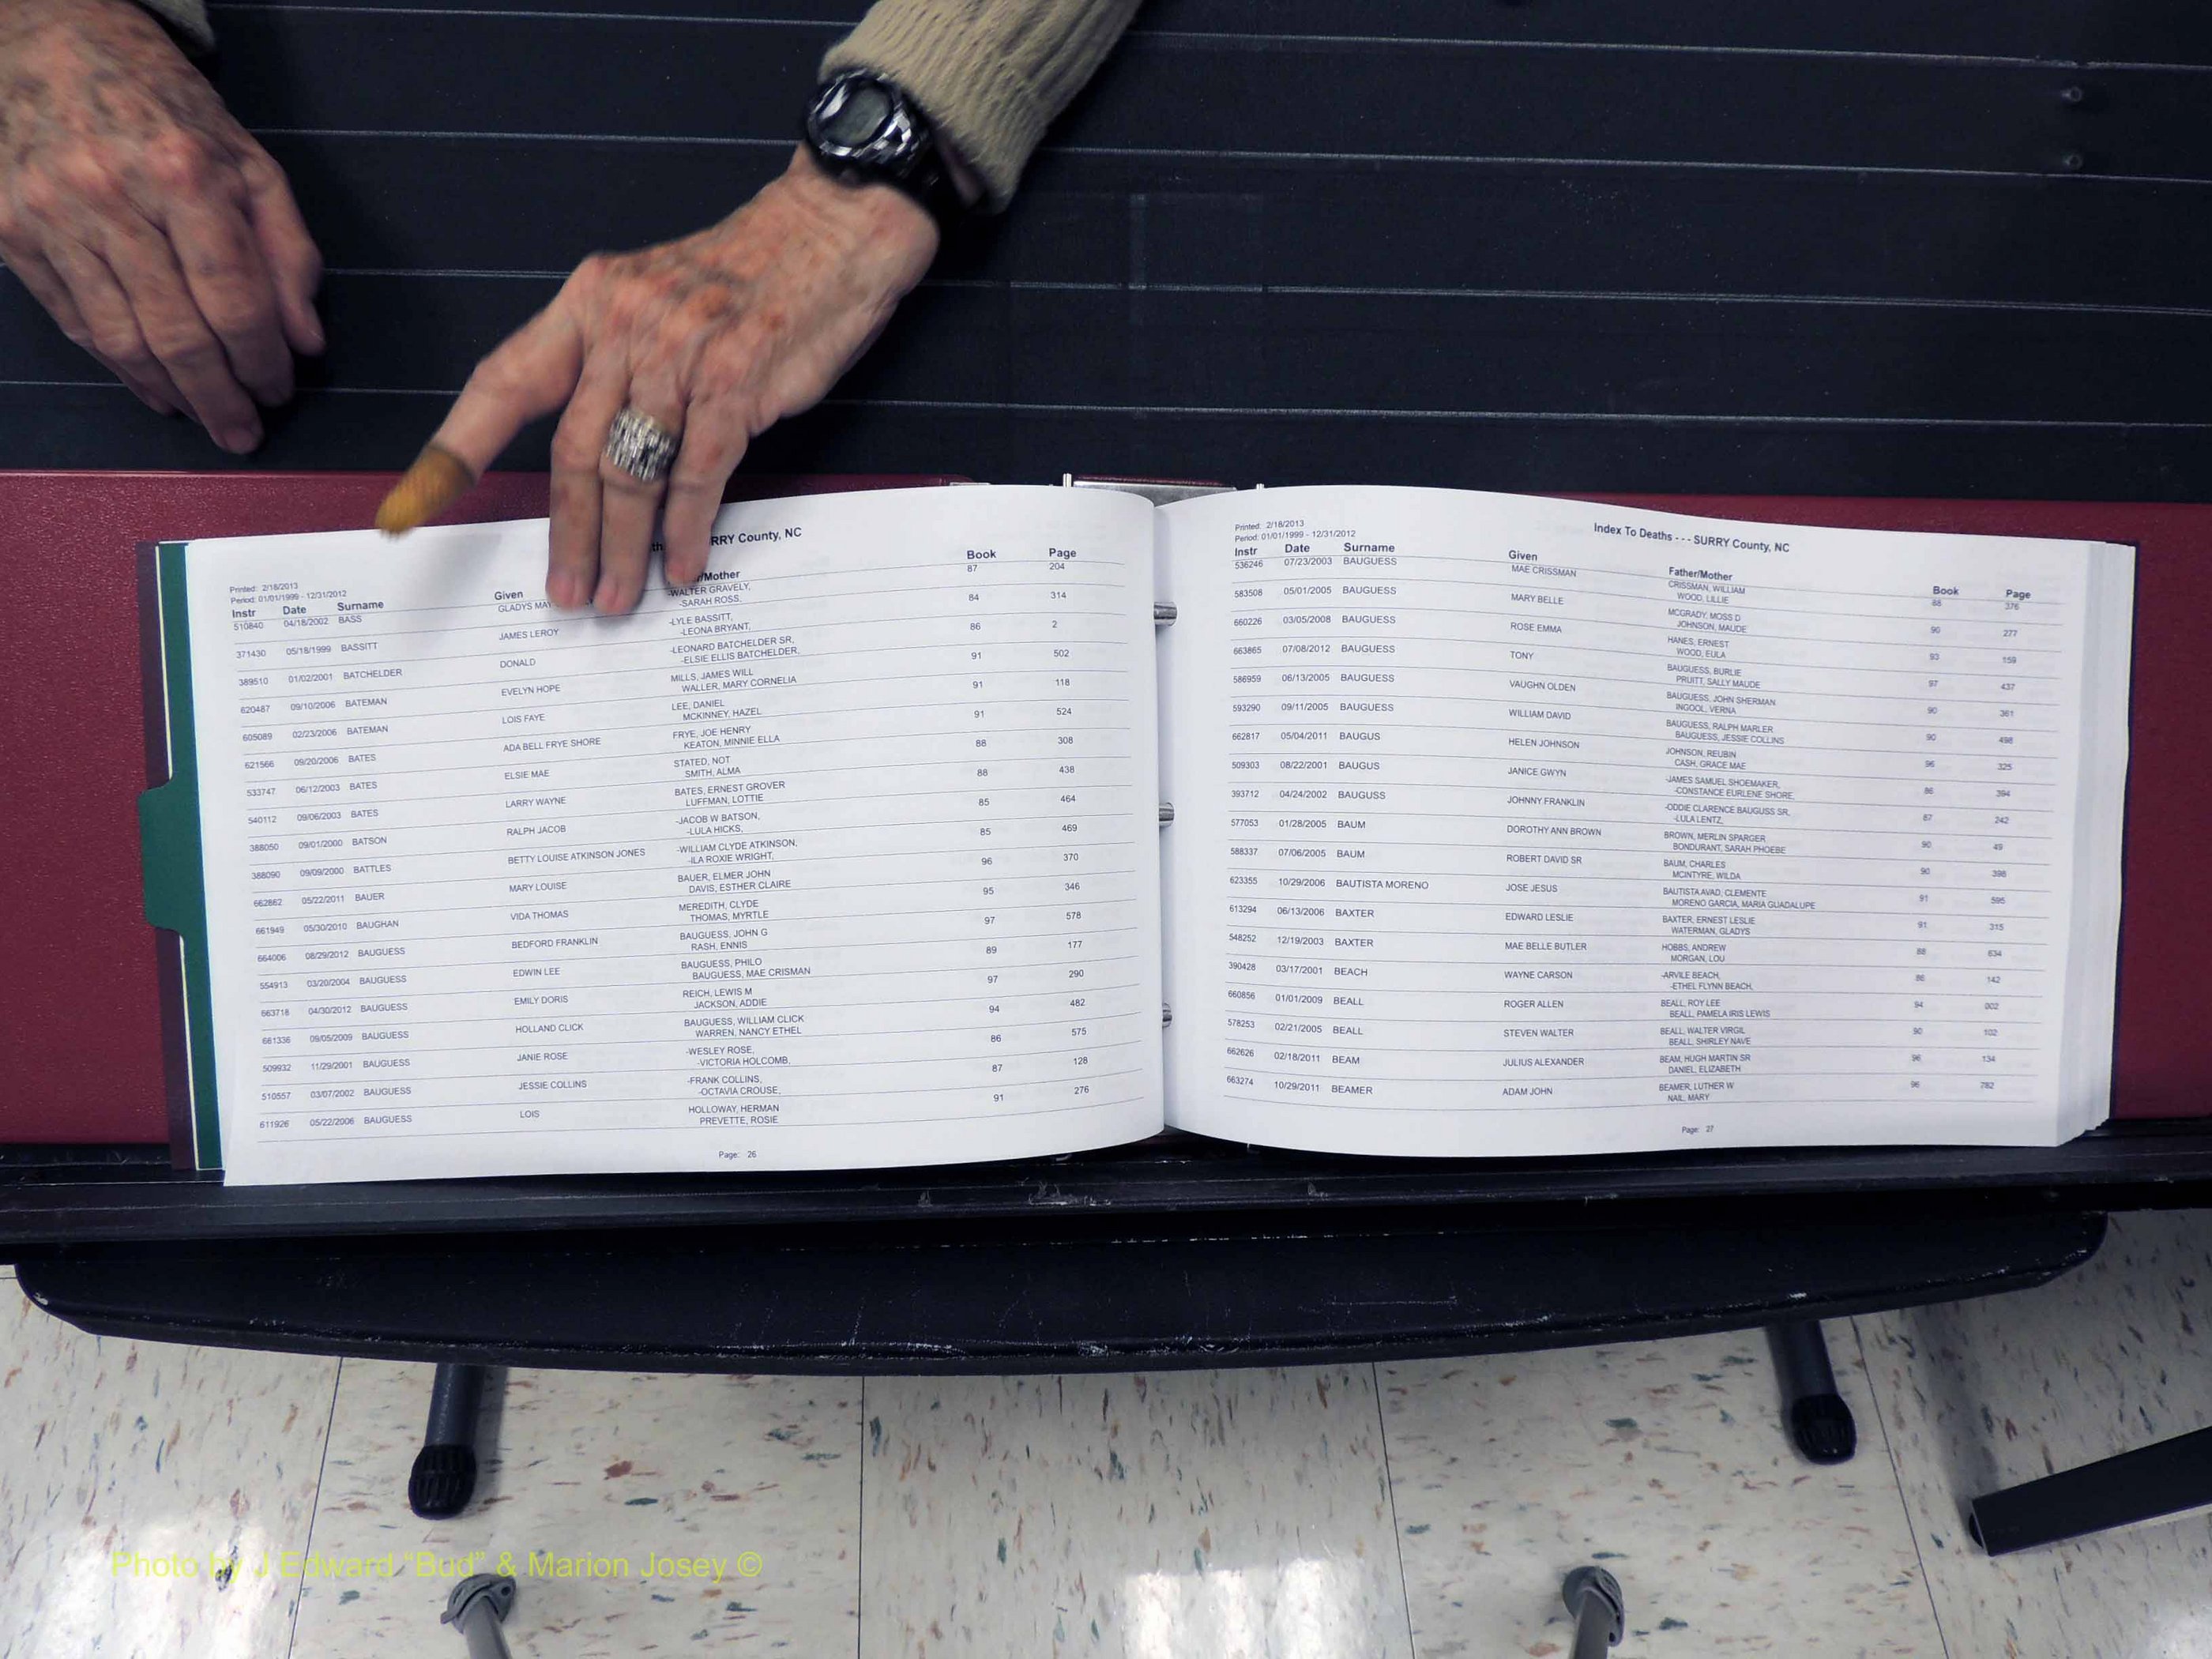 RRY County, NC
Printed: 2/18/2013
Period: 01/01/1999 - 12/31/2012
Instr Date Surname Given /Mother Book Page
510840 04/18/2002 BASS GLADYS MAY -WALTER GRAVELY, 87 204
-SARAH ROSS,
371430 05/18/1999 BASSITT JAMES LEROY -LYLE BASSITT, 84 314
-LEONA BRYANT,
389510 01/02/2001 BATCHELDER DONALD -LEONARD BATCHELDER SR, 86 2
-ELSIE ELLIS BATCHELDER,
620487 09/10/2006 BATEMAN EVELYN HOPE MILLS, JAMES WILL 91 502
WALLER, MARY CORNELIA
605089 02/23/2006 BATEMAN LOIS FAYE LEE, DANIEL 91 118
MCKINNEY, HAZEL
621566 09/20/2006 BATES ADA BELL FRYE SHORE FRYE, JOE HENRY 91 524
KEATON, MINNIE ELLA
533747 06/12/2003 BATES ELSIE MAE STATED, NOT 88 308
SMITH, ALMA
540112 09/06/2003 BATES LARRY WAYNE BATES, ERNEST GROVER 88 438
LUFFMAN, LOTTIE
388050 09/01/2000 BATSON RALPH JACOB -JACOB W BATSON, 85 464
-LULA HICKS,
388090 09/09/2000 BATTLES BETTY LOUISE ATKINSON JONES -WILLIAM CLYDE ATKINSON, 85 469
-ILA ROXIE WRIGHT,
662862 05/22/2011 BAUER MARY LOUISE BAUER, ELMER JOHN 96 370
DAVIS, ESTHER CLAIRE
661949 05/30/2010 BAUGHAN VIDA THOMAS MEREDITH, CLYDE 95 346
THOMAS, MYRTLE
664006 08/29/2012 BAUGUESS BEDFORD FRANKLIN BAUGUESS, JOHN G 97 578
RASH, ENNIS
554913 03/20/2004 BAUGUESS EDWIN LEE BAUGUESS, PHILO 89 177
BAUGUESS, MAE CRISMAN
663718 04/30/2012 BAUGUESS EMILY DORIS REICH, LEWIS M 97 290
JACKSON, ADDIE
661336 09/05/2009 BAUGUESS HOLLAND CLICK BAUGUESS, WILLIAM CLICK 94 482
WARREN, NANCY ETHEL
509932 11/29/2001 BAUGUESS JANIE ROSE -WESLEY ROSE, 86 575
-VICTORIA HOLCOMB,
510557 03/07/2002 BAUGUESS JESSIE COLLINS -FRANK COLLINS, 87 128
-OCTAVIA CROUSE,
611926 05/22/2006 BAUGUESS LOIS HOLLOWAY, HERMAN 91 276
PREVETTE, ROSIE
Page: 26
Printed: 2/18/2013
Index To Deaths - - - SURRY County, NC
Period: 01/01/1999 - 12/31/2012
Instr Date Surname Given Father/Mother Book Page
536246 07/23/2003 BAUGUESS MAE CRISSMAN CRISSMAN, WILLIAM 88 376
WOOD, LILLIE
583508 05/01/2005 BAUGUESS MARY BELLE MCGRADY, MOSS D 90 277
JOHNSON, MAUDE
660226 03/05/2008 BAUGUESS ROSE EMMA HANES, ERNEST 93 159
WOOD, EULA
663865 07/08/2012 BAUGUESS TONY BAUGUESS, BURLIE 97 437
PRUITT, SALLY MAUDE
586959 06/13/2005 BAUGUESS VAUGHN OLDEN BAUGUESS, JOHN SHERMAN 90 361
INGOOL, VERNA
593290 09/11/2005 BAUGUESS WILLIAM DAVID BAUGUESS, RALPH MARLER 90 498
BAUGUESS, JESSIE COLLINS
662817 05/04/2011 BAUGUS HELEN JOHNSON JOHNSON, REUBIN 96 325
CASH, GRACE MAE
509303 08/22/2001 BAUGUS JANICE GWYN -JAMES SAMUEL SHOEMAKER, 86 394
-CONSTANCE EURLENE SHORE,
393712 04/24/2002 BAUGUSS JOHNNY FRANKLIN -ODDIE CLARENCE BAUGUSS SR, 87 242
-LULA LENTZ,
577053 01/28/2005 BAUM DOROTHY ANN BROWN BROWN, MERLIN SPARGER 90 49
BONDURANT, SARAH PHOEBE
588337 07/06/2005 BAUM ROBERT DAVID SR BAUM, CHARLES 90 398
MCINTYRE, WILDA
623355 10/29/2006 BAUTISTA MORENO JOSE JESUS BAUTISTA AVAD, CLEMENTE 91 595
MORENO GARCIA, MARIA GUADALUPE
613294 06/13/2006 BAXTER EDWARD LESLIE BAXTER, ERNEST LESLIE 91 315
WATERMAN, GLADYS
548252 12/19/2003 BAXTER MAE BELLE BUTLER HOBBS, ANDREW 88 634
MORGAN, LOU
390428 03/17/2001 BEACH WAYNE CARSON -ARVILE BEACH, 86 142
-ETHEL FLYNN BEACH,
660856 01/01/2009 BEALL ROGER ALLEN BEALL, ROY LEE 94 002
BEALL, PAMELA IRIS LEWIS
578253 02/21/2005 BEALL STEVEN WALTER BEALL, WALTER VIRGIL 90 102
BEALL, SHIRLEY NAVE
662626 02/18/2011 BEAM JULIUS ALEXANDER BEAM, HUGH MARTIN SR 96 134
DANIEL, ELIZABETH
663274 10/29/2011 BEAMER ADAM JOHN BEAMER, LUTHER W 96 782
NAIL, MARY
Page: 27
Photo by J Edward "Bud" & Marion Josey ©